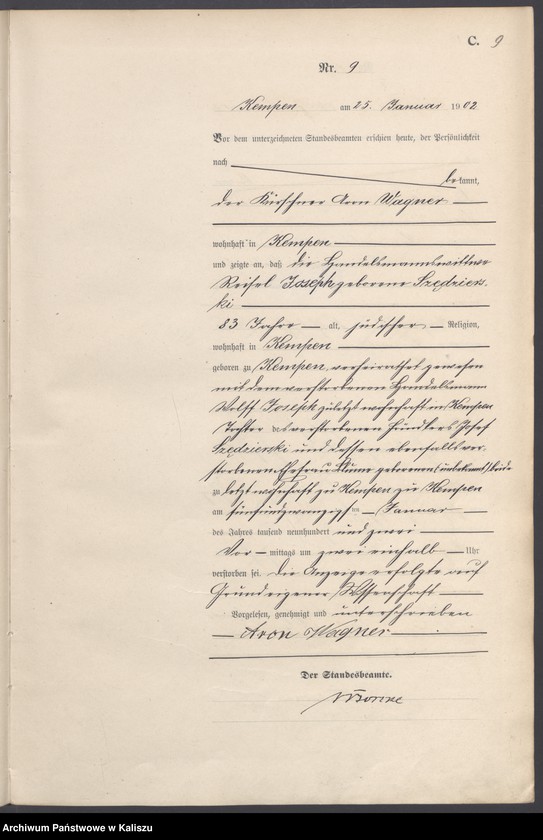 C. 9
Nr. 9
Kempen am 25. Januar 1902
Vor dem unterzeichneten Standesbeamten erschien heute, der Persönlichkeit
nach
bekannt,
der Kürschner Aron Wagner
wohnhaft in Kempen
und zeigte an, daß die Handelsmannswittwe
Reisel Joseph geborene Szędziers-
ki
83 Jahre alt, jüdischer Religion,
wohnhaft in Kempen
geboren zu Kempen, verheirathet gewesen
mit dem verstorbenen Handelsmann
Wolff Joseph zuletzt wohnhaft in Kempen
Tochter des verstorbenen Händlers Josef
Szędzierski und dessen ebenfalls ver-
storbenen Ehefrau Blume geborenen (unbekannt) beide
zuletzt wohnhaft zu Kempen zu Kempen
am fünfundzwanzigsten Januar
des Jahres tausend neunhundert und zwei
Vor mittags um zwei einhalb Uhr
verstorben sei. Die Anzeige erfolgte auf
Grund eigener Wissenschaft
Vorgelesen, genehmigt und unterschrieben
Aron Wagner
Der Standesbeamte.
Archiwum Państwowe w Kaliszu